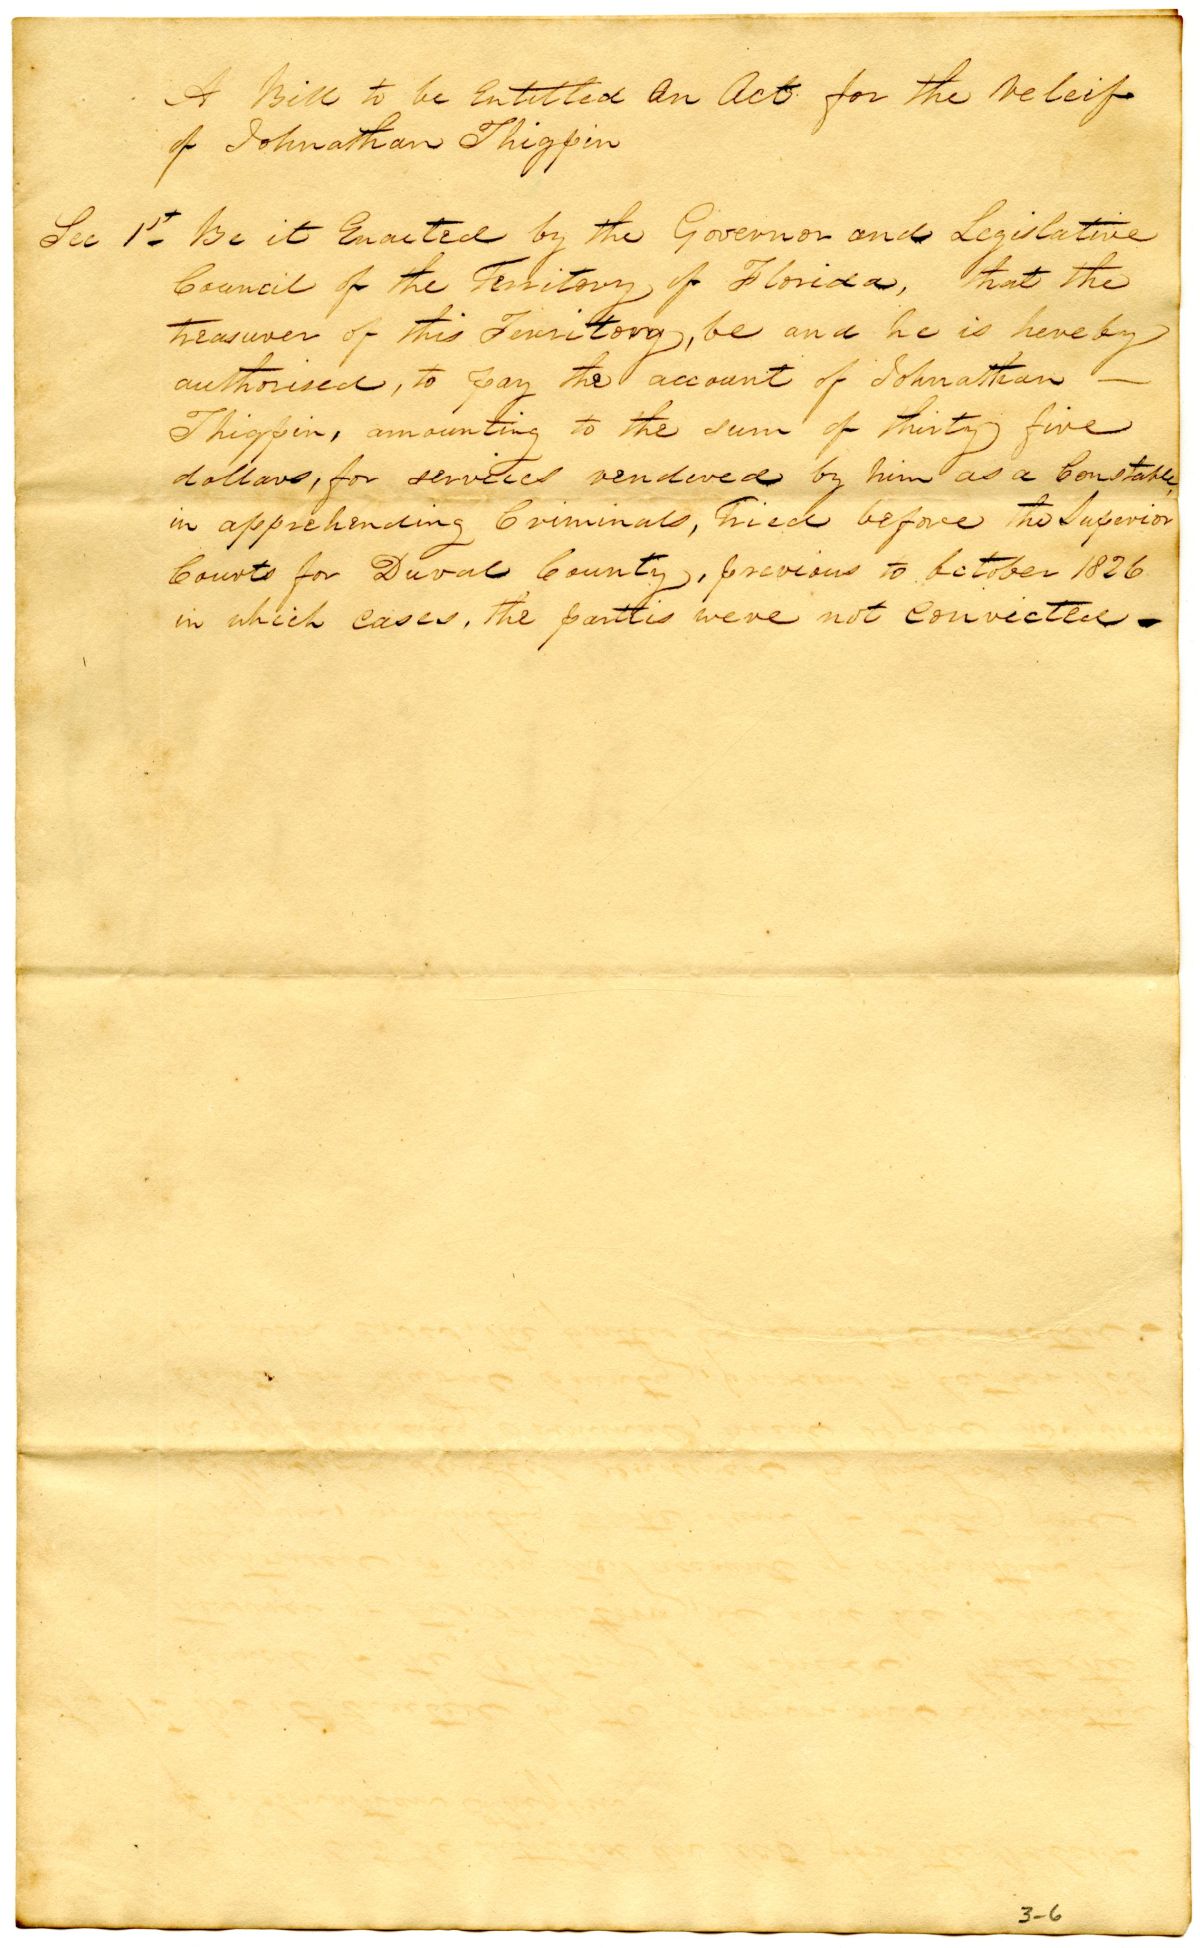 A Bill to be Entitled An Act for the Releif
of Johnathan Thigpin
Sec 1st Be it Enacted by the Governor and Legislative
Council of the Territory of Florida, that the
treasurer of this Territory, be and he is hereby
authorised, to pay the account of Johnathan —
Thigpin, amounting to the sum of thirty five
dollars, for services rendered by him as a Constable,
in apprehending Criminals, tried before the Superior
Courts for Duval County, previous to October 1826
in which cases, the parttis were not convicted –
3-6